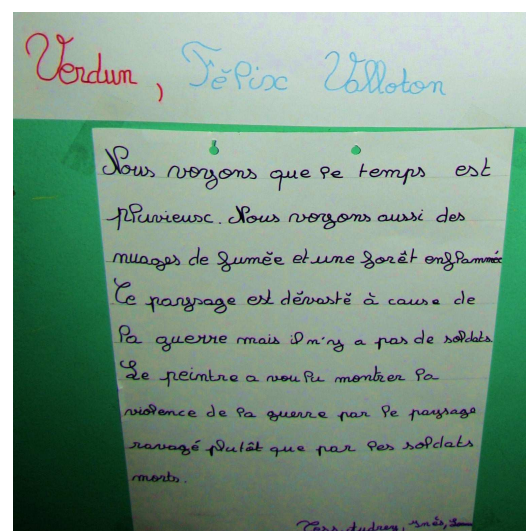 Verdun, Félix Valloton
Nous voyons que le temps est
pluvieux. Nous voyons aussi des
nuages de fumée et une forêt enflammée
Ce paysage est dévasté à cause de
la guerre mais il n'y a pas de soldats.
Le peintre a voulu montrer la
violence de la guerre par le paysage
ravagé plutôt que par les soldats
morts.
Audrey, Inés,